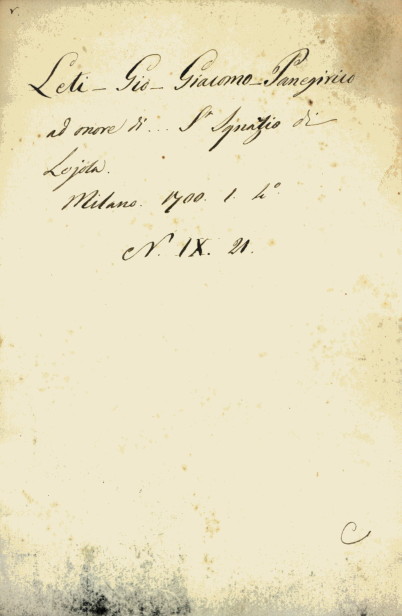 v.
Leti - Gio - Giacomo - Panegirico
ad onore di ... St Ignazio di
Lojola.
Milano. 1700. 1. 4°.
N. IX. 21.
C